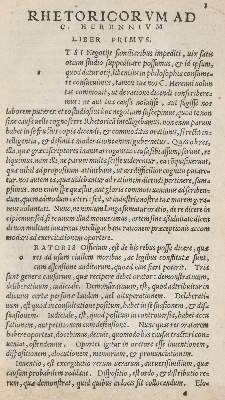 RHETORICORVM AD
C. HERENNIVM
LIBER PRIMVS.
TSI Negotijs familiaribus impediti, uix satis
otium studio suppeditare possumus, & id ipsum,
quod datur otij, libentius in philosophia consume-
re consueuimus, tamen tua nos C. Herenni uolun
tas commouit, ut de ratione dicendi conscriberemus
ne aut tua causa noluisse, aut fugisse nos
laborem putares. et eo studiosius hoc negotium suscepimus, quod te non
sine causa uelle cognoscere Rhetoricā intelligebamus. non enim parum
habet in se fructus copia dicendi, & commoditas orationis, si recta in-
telligentia, & definita animi moderatione gubernetur. Quas ob res,
ea
reliquimus. nam illi, ne parum multa scisse uiderentur, ea
quæ nihil attinebant, ut ars difficilior cognitu putare-
tur. nos autem ea, quæ uidebantur ad rationem dicendi pertinere, sum
psimus. non enim spe quæstus, aut gloria commoti uenimus ad scriben-
dum, quemadmodum ceteri, sed, ut industria nostra tuæ morem geramus
uoluntati. Nunc, ne nimium longa sumatur oratio, de re dicere in-
cipiemus, sed si te unum illud monuerimus, artem sine assiduitate dicendi
non multum iuuare. ut intelligas hanc rationem præceptionis accom-
modari ad exercitationem oportere.
RATORIS Officium, est de his rebus posse dicere, quæ
res ad usum ciuilem moribus, ac legibus constitutæ sunt,
cum assensione auditorum, quoad eius fieri poterit. Tria
sunt genera causarum, quæ recipere debet orator: demonstratiuum,
deliberatiuum, iudiciale. Demonstratiuum, est, quod attribuitur in
alicuius certæ personæ laudem, uel uituperationem. Deliberati-
uum, est quod in consultatione positum, habet in se suasionem, & dis-
suasionem. Iudiciale, est, quod positum in controuersia, habet accu-
sationem, aut petitionem cum defensione. Nunc quas res oratorem
habere oporteat, docebimus, deinde, quomodo has causas tractari con-
ueniat, ostendemus. Oportet igitur in oratore esse inuentionem,
dispositionem, elocutionem, memoriam, & pronunciationem.
Inuentio, est excogitatio rerum uerarum, aut uerisimilium, quæ
causam probabilem reddant. Dispositio, est ordo, & distributio re-
rum, quæ demonstrat, quid quibus in locis sit collocandum. Elocu